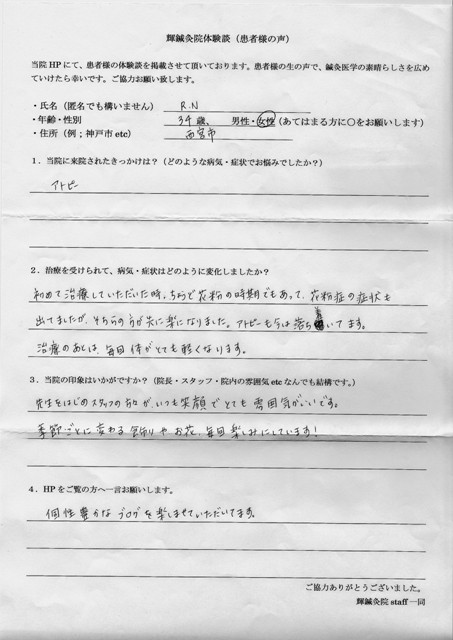 輝鍼灸院体験談（患者様の声）
当院HPにて、患者様の体験談を掲載させて頂いております。患者様の生の声で、鍼灸医学の素晴らしさを広め
ていけたら幸いです。ご協力お願い致します。
・氏名（匿名でも構いません） R.N
・年齢・性別 34歳、 男性・女性（あてはまる方に○をお願いします）
・住所（例；神戸市etc） 西宮市
１．当院に来院されたきっかけは？（どのような病気・症状でお悩みでしたか？）
アトピー
２．治療を受けられて、病気・症状はどのように変化しましたか？
初めて治療していただいた時、ちょうど花粉の時期でもあって、花粉症の症状も
出てましたが、そちらの方が先に楽になりました。アトピーも今は落ち着いてます。
治療のあとは、毎回体がとても軽くなります。
３．当院の印象はいかがですか？（院長・スタッフ・院内の雰囲気etcなんでも結構です。）
先生をはじめスタッフの方々が、いつも笑顔でとても雰囲気がいいです。
季節ごとに変わる飾りやお花、毎回楽しみにしています！
４．HPをご覧の方へ一言お願いします。
個性豊かなブログを楽しませていただいてます。
ご協力ありがとうございました。
輝鍼灸院staff一同